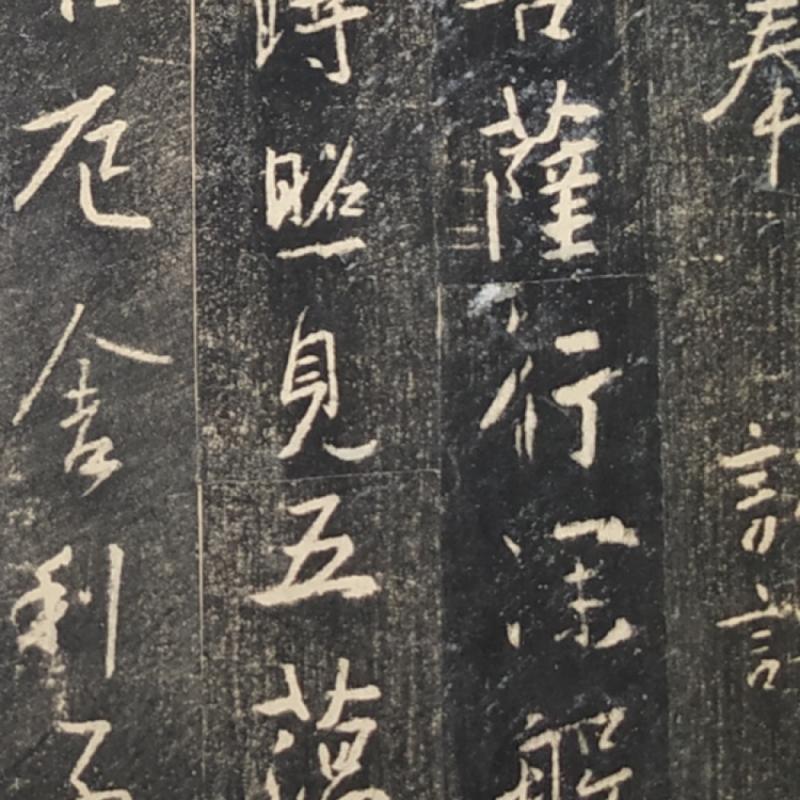 奉
菩薩行深般
時照見五蘊
厄舍利子